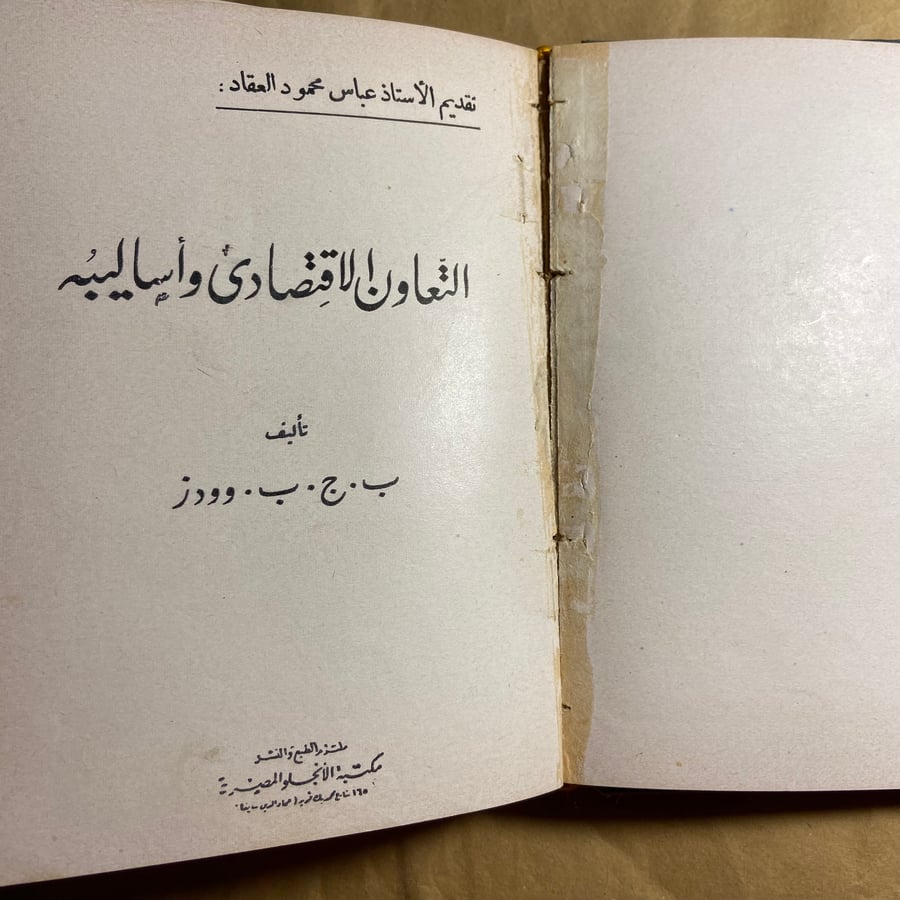 تقديم الأستاذ عباس محمود العقاد :
التّعاون الاقتصادى وأساليبُه
تأليف
ب . ج . ب . وودز
ملتزم الطبع والنشر
مكتبة الأنجلو المصرية
١٦٥ شارع محمد بك فريد (عماد الدين سابقا)